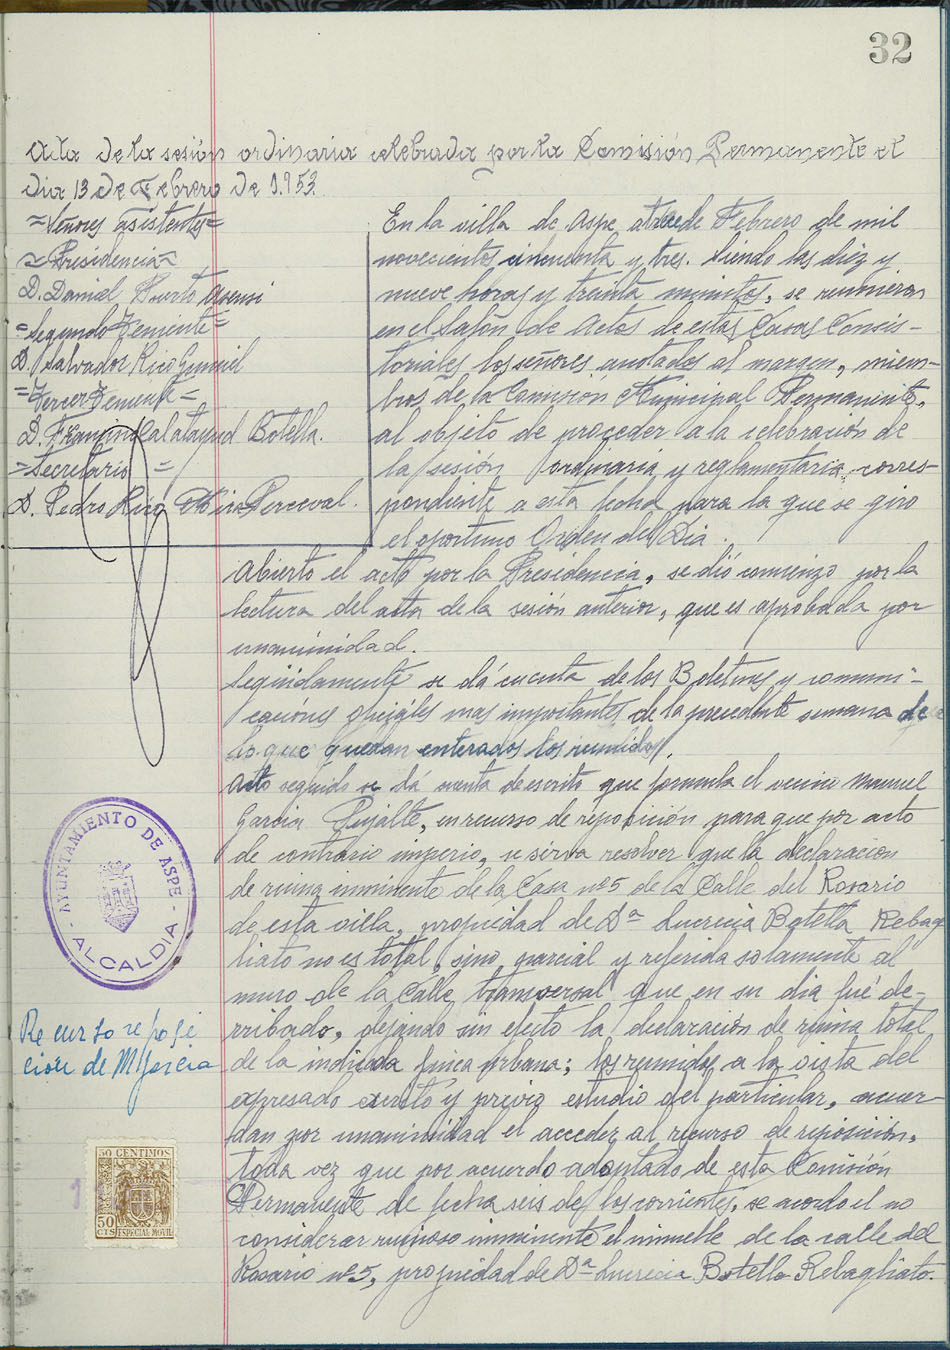 32
Acta de la sesión ordinaria celebrada por la Comisión Permanente el
dia 13 de Febrero de 1.953.
=Señores asistentes=
=Presidencia=
D. Daniel Puerto Asensi
=Segundo Teniente=
D. Salvador Rico Gumiel
=Tercer Teniente=
D. Francisco Calatayud Botella.
=Secretario=
D. Pedro Rico Mira-Perceval.
En la villa de Aspe, a trece de Febrero de mil
novecientos cincuenta y tres. Siendo las diez y
nueve horas y treinta minutos, se reunieron
en el Salón de Actos de estas Casas Consis-
toriales los señores anotados al margen, miem-
bros de la Comisión Municipal Permanente,
al objeto de proceder a la celebración de
la sesión ordinaria y reglamentaria corres-
pondiente a esta fecha para la que se giró
el oportuno Orden del Dia.
Abierto el acto por la Presidencia, se dió comienzo por la
lectura del acta de la sesión anterior, que es aprobada por
unanimidad.
Seguidamente se dá cuenta de los Boletines y comuni-
caciones oficiales mas importantes de la precedente semana de
lo que quedan enterados los reunidos.
Acto seguido se dá cuenta de escrito que formula el vecino Manuel
Garcia Pujalte, en recurso de reposición para que por acto
de contrario imperio, se sirva resolver que la declaracion
de ruina inminente de la Casa nº 5 de la Calle del Rosario
de esta villa, propiedad de Dª Lucrecia Botella Rebag
liato no es total, sino parcial y referida solamente al
muro de la Calle transversal que en su dia fué de-
rribado, dejando sin efecto la declaración de ruina total
de la indicada finca urbana; los reunidos a la vista del
expresado escrito y previo estudio del particular, acuer-
dan por unanimidad el acceder al recurso de reposición,
toda vez que por acuerdo adoptado de esta Comisión
Permanente de fecha seis de los corrientes, se acordo el no
considerar ruinoso inminente el inmueble de la calle del
Rosario nº 5, propiedad de Dª Lucrecia Botella Rebagliato.
AYUNTAMIENTO DE ASPE
ALCALDIA
Recurso reposi
cion de M Garcia
50 CENTIMOS
50
CTS ESPECIAL MOVIL